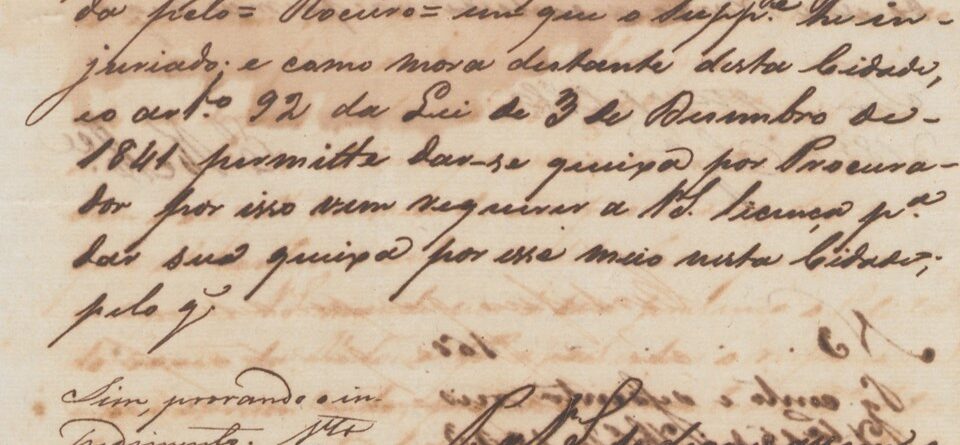 da pelo= Rocuro= em que o Supp.e he in-
juriado; e como mora destante desta Cidade,
e o art.o 92 da Lei de 3 de Desembro de-
1841 permitte dar-se queixa por Procura-
dor por isso vem requerer a VS. licença p.a
dar sua queixa por esse meio nesta Cidade;
pelo q.
Sim, provando o im-
pedimento.